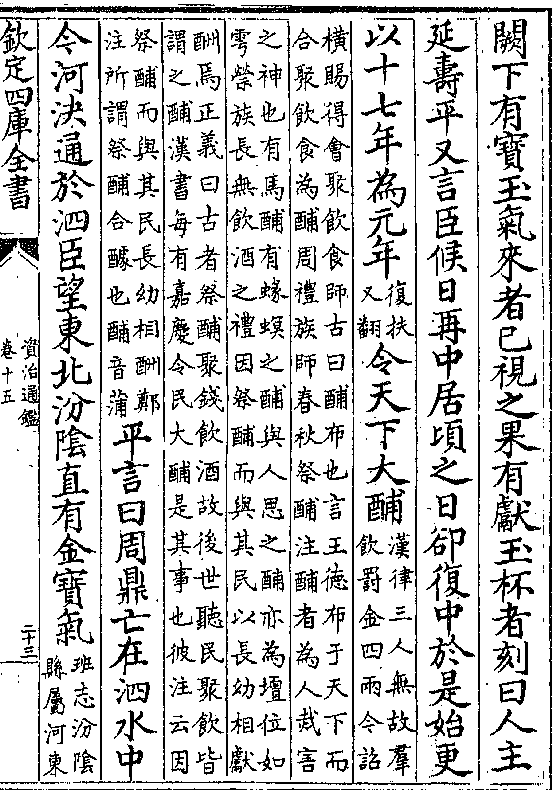 闕下有寶玉氣來者已視之果有獻玉杯者刻曰人主
延壽平又言臣候日再中居頃之日卻復中於是始更
以十七年為元年復扶又翻令天下大酺漢律三人無故羣飲罰金四兩令詔
橫賜得會聚飲食師古曰酺布也言王德布于天下而
合聚飲食為酺周禮族師春秋祭酺注酺者為人烖害
之神也有馬酺有蝝螟之酺與人思之酺亦為壇位如
雩禜族長無飲酒之禮因祭酺而與其民以長幼相獻
酬焉正義曰古者祭酺聚錢飲酒故後世聽民聚飲皆
謂之酺漢書每有嘉慶令民大酺是其事也彼注云因
祭酺而與其民長幼相酬鄭
注所謂祭酺合醵也酺音蒲
平言曰周鼎亡在泗水中
今河決通於泗臣望東北汾陰直有金寶氣班志汾陰縣屬河東
欽定四庫全書
資治通鑑
卷十五
二十三